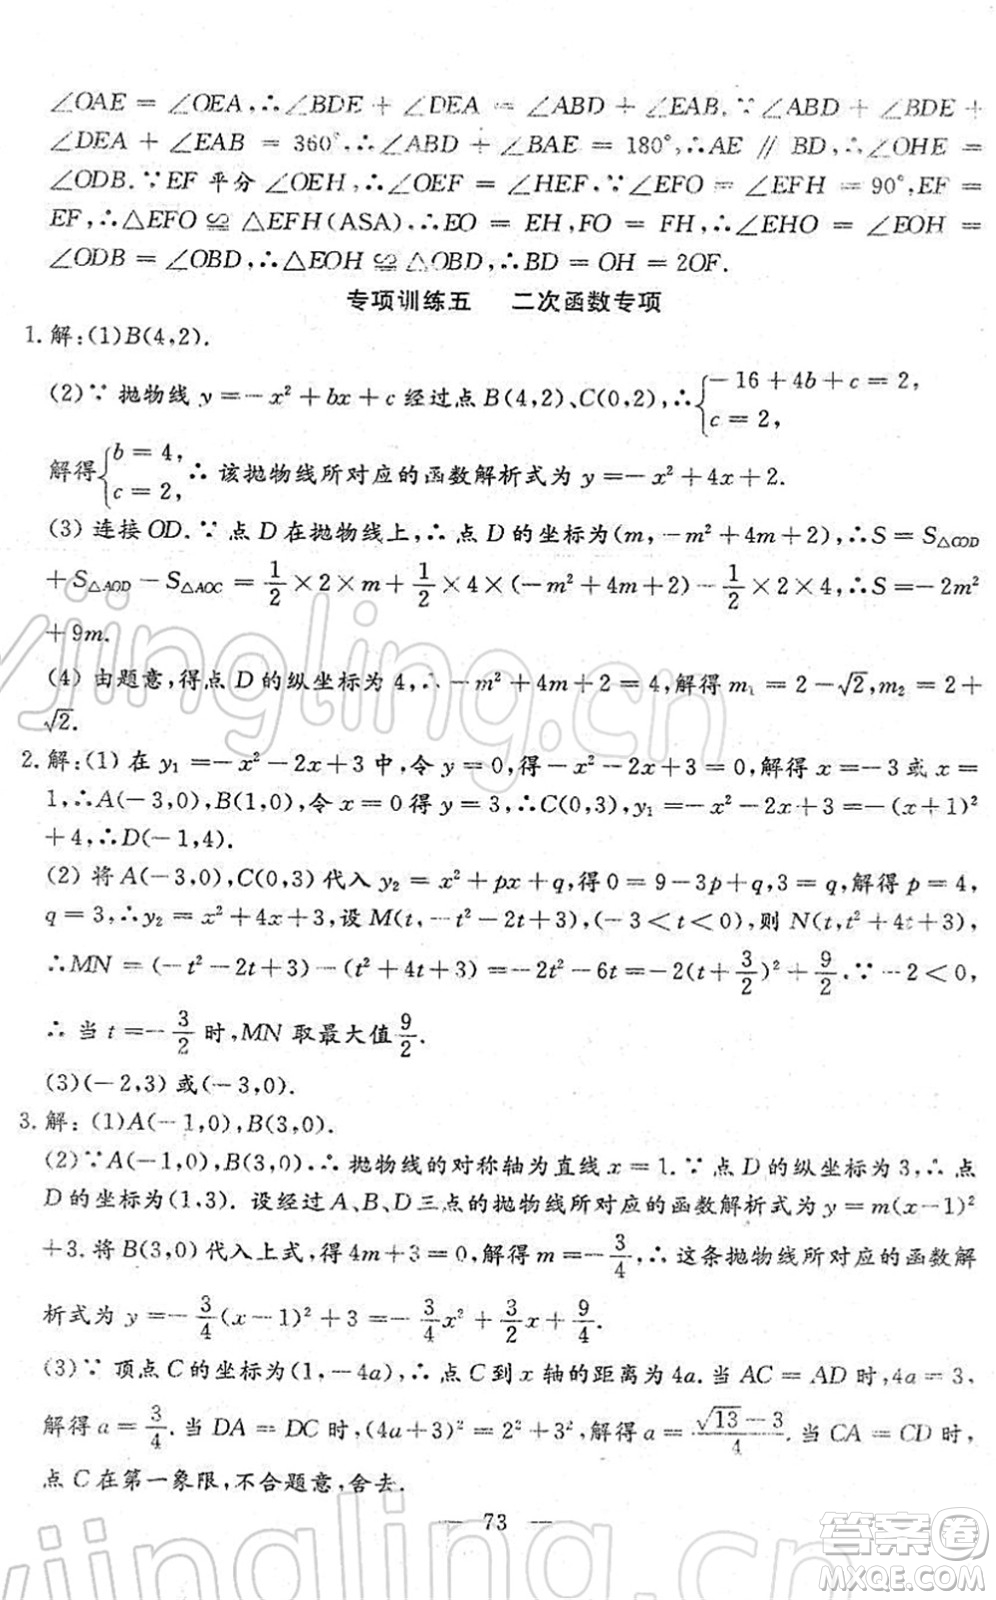 ∠OAE = ∠OEA,∴∠BDE + ∠DEA = ∠ABD + ∠EAB.∵∠ABD + ∠BDE +
∠DEA + ∠EAB = 360°,∴∠ABD + ∠BAE = 180°,∴AE ∥ BD,∴∠OHE =
∠ODB.∵EF 平分 ∠OEH,∴∠OEF = ∠HEF.∵∠EFO = ∠EFH = 90°,EF =
EF,∴△EFO ≌ △EFH(ASA).∴EO = EH,FO = FH,∴∠EHO = ∠EOH =
∠ODB = ∠OBD,∴△EOH ≌ △OBD,∴BD = OH = 2OF.
专项训练五 二次函数专项
1. 解:(1)B(4,2).
(2)∵ 抛物线 y = -x² + bx + c 经过点 B(4,2)、C(0,2),∴{-16 + 4b + c = 2, c = 2,
解得{b = 4, c = 2, ∴ 该抛物线所对应的函数解析式为 y = -x² + 4x + 2.
(3) 连接 OD.∵ 点 D 在抛物线上,∴ 点 D 的坐标为(m, -m² + 4m + 2),∴S = S△COD
+ S△AOD - S△AOC = 1/2 × 2 × m + 1/2 × 4 × (-m² + 4m + 2) - 1/2 × 2 × 4,∴S = -2m²
+ 9m.
(4) 由题意,得点 D 的纵坐标为 4,∴ -m² + 4m + 2 = 4,解得 m₁ = 2 - √2,m₂ = 2 +
√2.
2. 解:(1) 在 y₁ = -x² - 2x + 3 中,令 y = 0,得 -x² - 2x + 3 = 0,解得 x = -3 或 x =
1,∴A(-3,0),B(1,0),令 x = 0 得 y = 3,∴C(0,3),y₁ = -x² - 2x + 3 = -(x + 1)²
+ 4,∴D(-1,4).
(2) 将 A(-3,0),C(0,3) 代入 y₂ = x² + px + q,得 0 = 9 - 3p + q,3 = q,解得 p = 4,
q = 3,∴y₂ = x² + 4x + 3,设 M(t, -t² - 2t + 3),(-3 < t < 0),则 N(t,t² + 4t + 3),
∴MN = (-t² - 2t + 3) - (t² + 4t + 3) = -2t² - 6t = -2(t + 3/2)² + 9/2.∵ -2 < 0,
∴ 当 t = -3/2 时,MN 取最大值 9/2.
(3)(-2,3) 或(-3,0).
3. 解: (1)A(-1,0),B(3,0).
(2)∵A(-1,0),B(3,0).∴ 抛物线的对称轴为直线 x = 1.∵ 点 D 的纵坐标为 3,∴ 点
D 的坐标为(1,3). 设经过 A、B、D 三点的抛物线所对应的函数解析式为 y = m(x - 1)²
+ 3. 将 B(3,0) 代入上式,得 4m + 3 = 0,解得 m = -3/4,∴ 这条抛物线所对应的函数解
析式为 y = -3/4(x - 1)² + 3 = -3/4x² + 3/2x + 9/4.
(3)∵ 顶点 C 的坐标为(1, -4a),∴ 点 C 到 x 轴的距离为 4a. 当 AC = AD 时,4a = 3,
解得 a = 3/4. 当 DA = DC 时,(4a + 3)² = 2² + 3²,解得 a = (√13 - 3)/4. 当 CA = CD 时,
点 C 在第一象限,不合题意,舍去.
— 73 —
yjingling.cn
yjingling.cn
答案卷
MXQE.COM